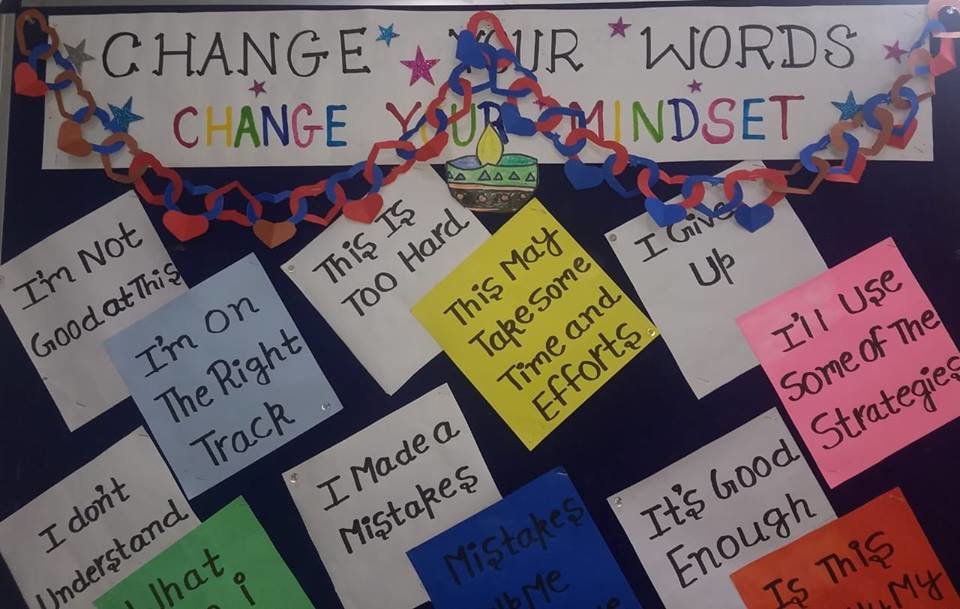 CHANGE YOUR WORDS
CHANGE YOUR MINDSET
I'm Not
Good at This
I'm on
The Right
Track
This Is
Too Hard
This May
Take some
Time and
Efforts
I Give
Up
I'll Use
Some of The
Strategies
I don't
Understand
What
i
I Made a
Mistakes
Mistakes
Me
It's Good
Enough
Is This
My